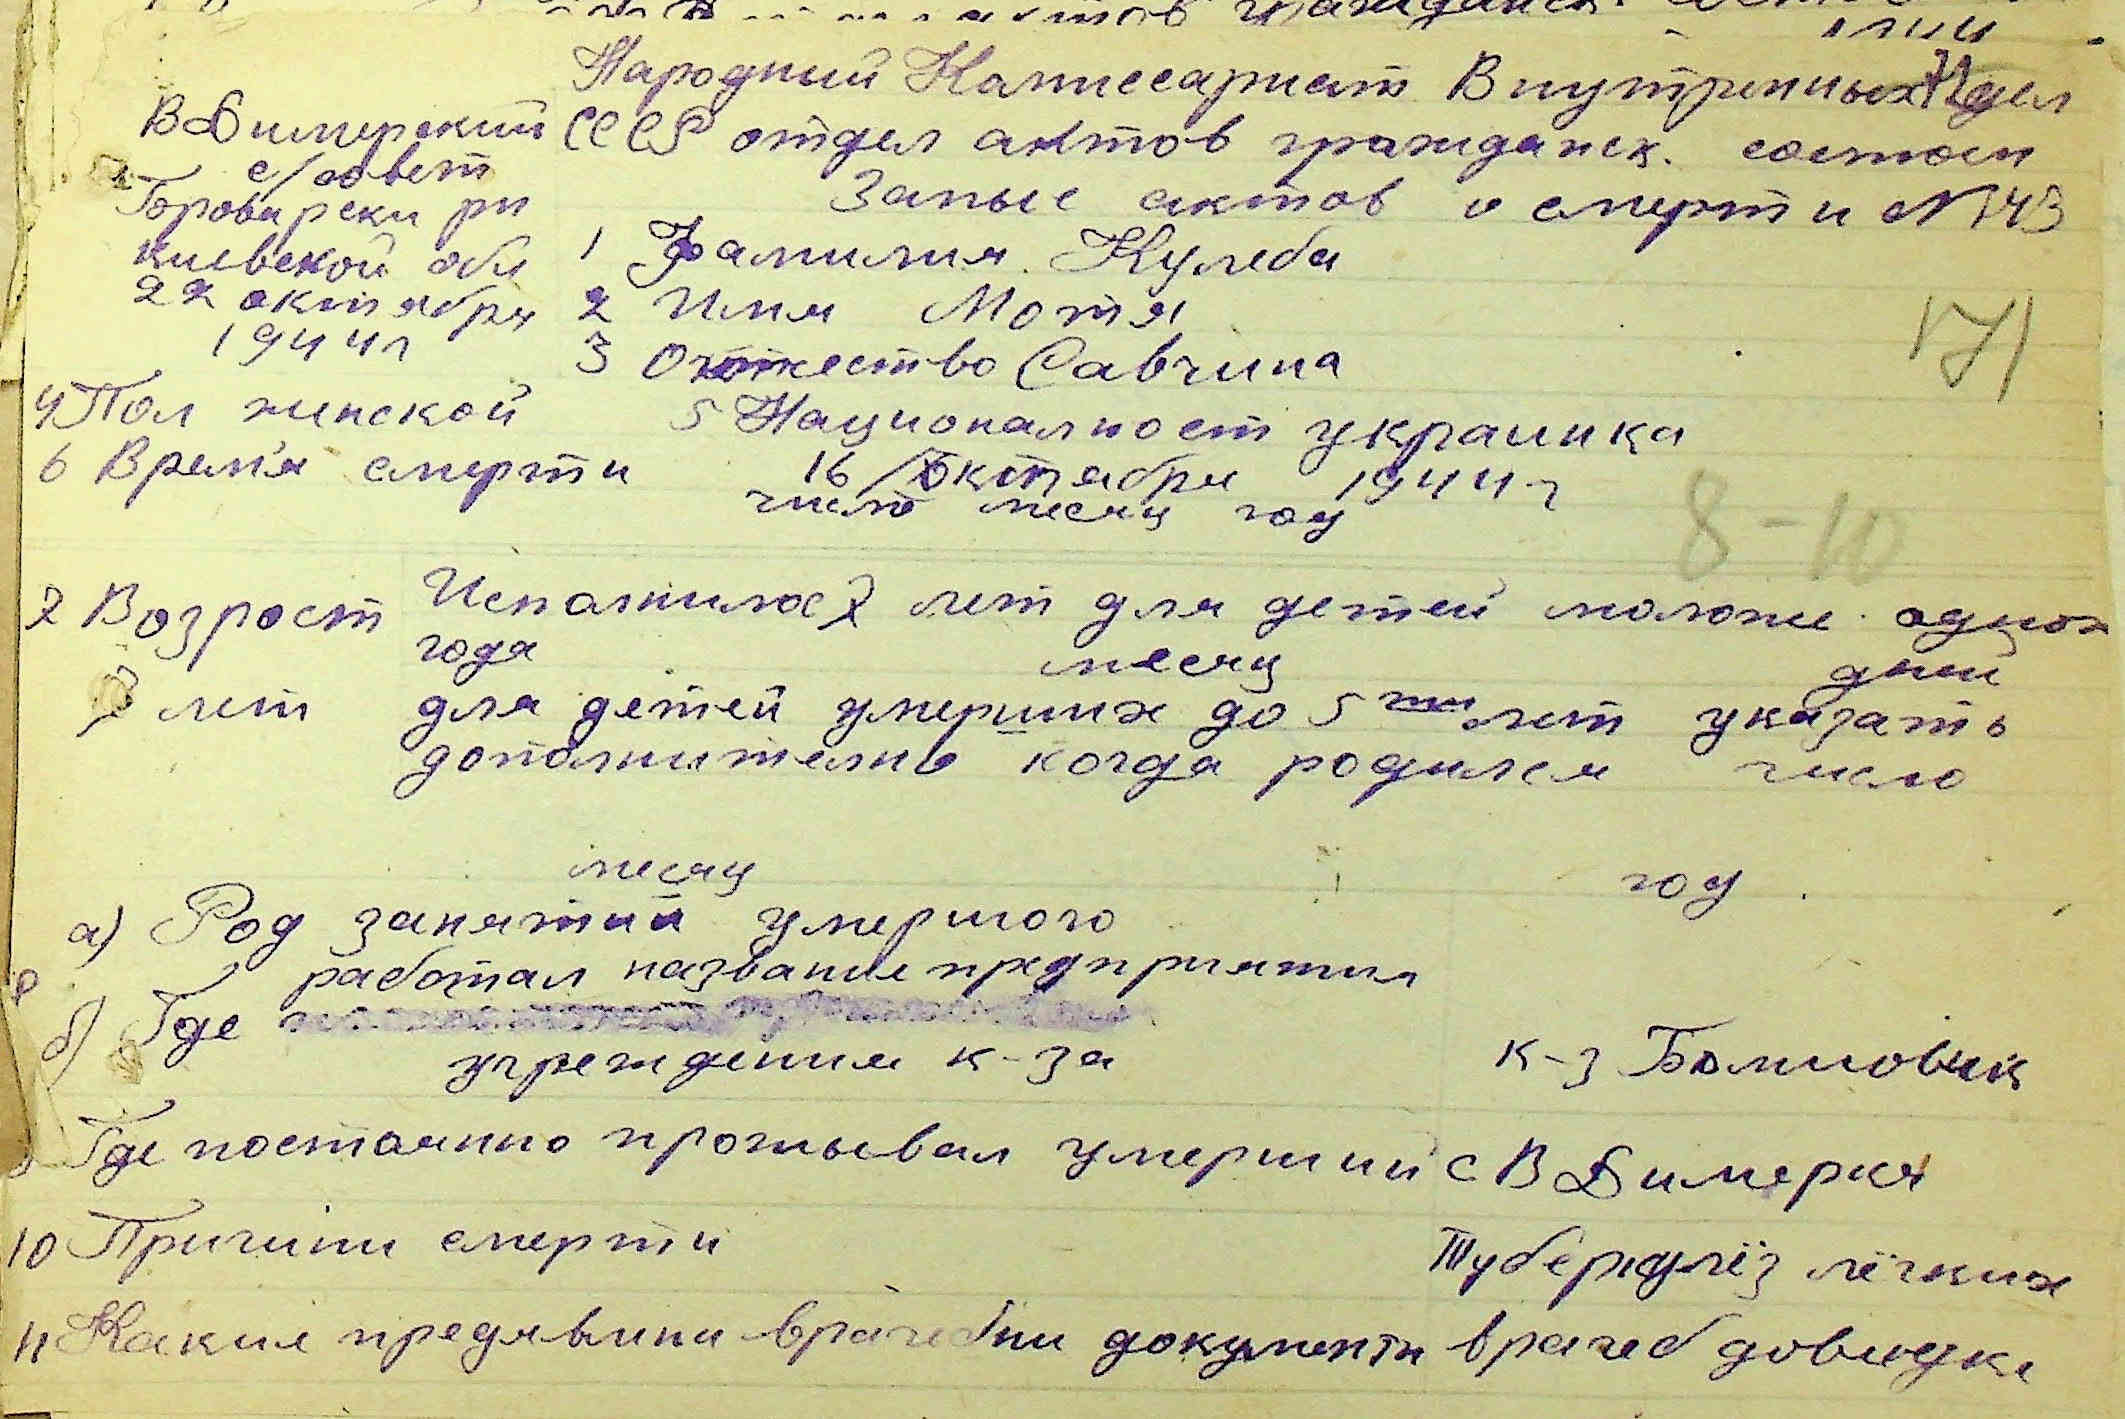 актов гражданск.
Народный Комиссариат Внутренных дел
СССР отдел актов гражданск. состоян
Запысь актов о смерти №143
В Димерский
с/совет
Броварски рн
Киевской обл
22 октября
1944г
1 Фамилия Кулеба
2 Имя Мотя
3 Отжество Савчина
171
4 Пол жинской 5 Националност украинка
6 Время смерти 16 Октября 1944г
число месяц год
8-10
7 Возрост Исполнилос 7 лет для детей моложе одног
года месяц дней
7 лет для детей умерших до 5ти лет указать
дополнително когда родился число
месяц год
а) Род занятий умершого
работал название предприятия
б) Где
учреждения к-за к-з Болшовик
Где постоянно прожывал умерший с В Димерка
10 Причини смерти Туберкулёз лёгких
11 Какие предявлини врачебни документи врачеб довидка